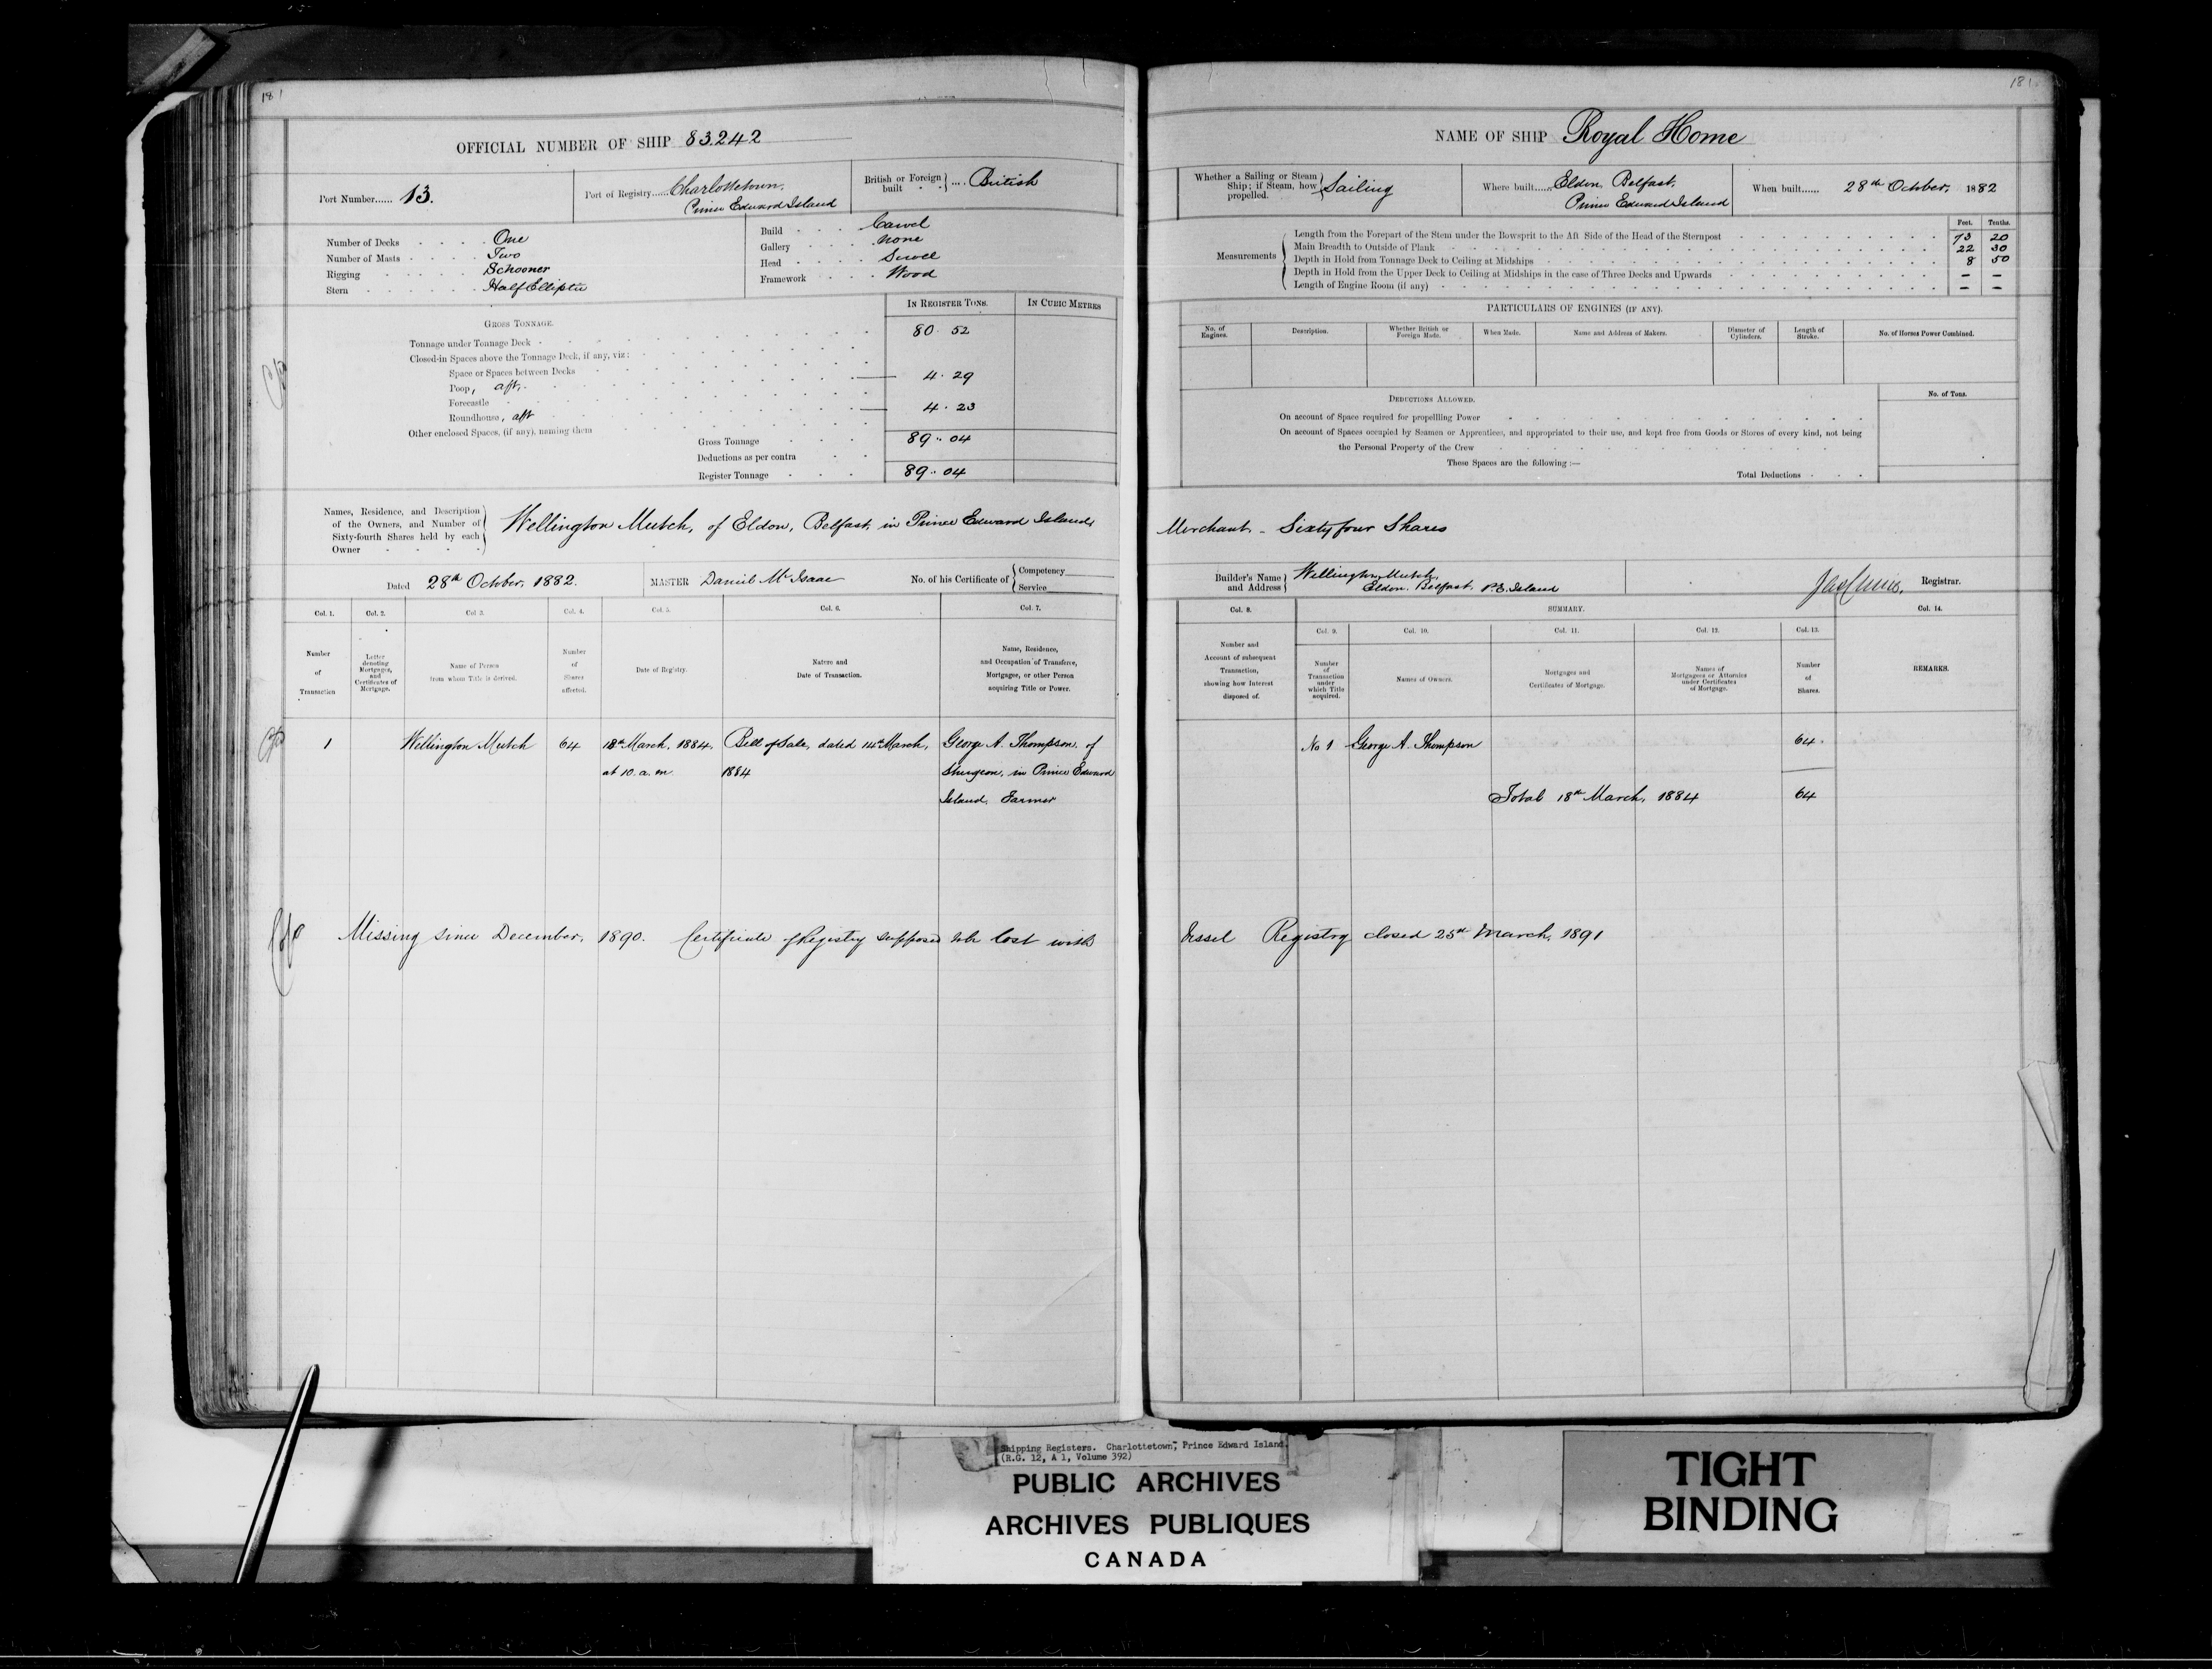 181
OFFICIAL NUMBER OF SHIP 83.242
Port Number...... 13.
Port of Registry...... Charlottetown,
Prince Edward Island
British or Foreign built .... British
Number of Decks One
Number of Masts Two
Rigging Schooner
Stern Half Elliptic
Build Carvel
Gallery None
Head Scroll
Framework Wood
IN REGISTER TONS. IN CUBIC METRES
GROSS TONNAGE.
Tonnage under Tonnage Deck 80. 52
Closed-in Spaces above the Tonnage Deck, if any, viz:
Space or Spaces between Decks
Poop, aft. 4. 29
Forecastle
Roundhouse, aft 4. 23
Other enclosed Spaces, (if any), naming them
Gross Tonnage 89.. 04
Deductions as per contra
Register Tonnage 89.. 04
Names, Residence, and Description
of the Owners, and Number of
Sixty-fourth Shares held by each
Owner
Wellington Mutch, of Eldon, Belfast, in Prince Edward Island,
Dated 28th October, 1882.
MASTER Daniel McIsaac
No. of his Certificate of Competency
Service
Col. 1. Col. 2. Col 3. Col. 4. Col. 5. Col. 6. Col. 7.
Number of Transaction
Letter denoting Mortgages, and Certificates of Mortgage.
Name of Person from whom Title is derived.
Number of Shares affected.
Date of Registry.
Nature and Date of Transaction.
Name, Residence, and Occupation of Transferee, Mortgagee, or other Person acquiring Title or Power.
1 Wellington Mutch 64 18th March, 1884, Bill of Sale, dated 14th March, George A. Thompson, of
at 10. a. m. 1884 Sturgeon, in Prince Edward
Island, Farmer
Missing since December, 1890. Certificate of Registry supposed to be lost with
181
NAME OF SHIP Royal Home
Whether a Sailing or Steam
Ship; if Steam, how
propelled.
Sailing
Where built...... Eldon, Belfast,
Prince Edward Island
When built...... 28th October, 1882
Feet. Tenths.
Measurements
Length from the Forepart of the Stem under the Bowsprit to the Aft Side of the Head of the Sternpost 73 20
Main Breadth to Outside of Plank 22 30
Depth in Hold from Tonnage Deck to Ceiling at Midships 8 50
Depth in Hold from the Upper Deck to Ceiling at Midships in the case of Three Decks and Upwards — —
Length of Engine Room (if any) — —
PARTICULARS OF ENGINES (IF ANY).
No. of Engines. Description. Whether British or Foreign Made. When Made. Name and Address of Makers. Diameter of Cylinders. Length of Stroke. No. of Horses Power Combined.
DEDUCTIONS ALLOWED. No. of Tons.
On account of Space required for propellling Power
On account of Spaces occupied by Seamen or Apprentices, and appropriated to their use, and kept free from Goods or Stores of every kind, not being
the Personal Property of the Crew
These Spaces are the following :—
Total Deductions
Merchant - Sixty four Shares
Builder's Name and Address
Wellington Mutch,
Eldon, Belfast, P.E. Island
Registrar.
Col. 8. SUMMARY. Col. 14.
Col. 9. Col. 10. Col. 11. Col. 12. Col. 13.
Number and Account of subsequent Transaction, showing how Interest disposed of.
Number of Transaction under which Title acquired.
Names of Owners.
Mortgages and Certificates of Mortgage.
Names of Mortgagees or Attornies under Certificates of Mortgage.
Number of Shares.
REMARKS.
No 1 George A. Thompson 64.
Total 18th March, 1884 64
Vessel Registry closed 25th March, 1891
Shipping Registers. Charlottetown, Prince Edward Island.
(R.G. 12, A 1, Volume 392)
PUBLIC ARCHIVES
ARCHIVES PUBLIQUES
CANADA
TIGHT
BINDING